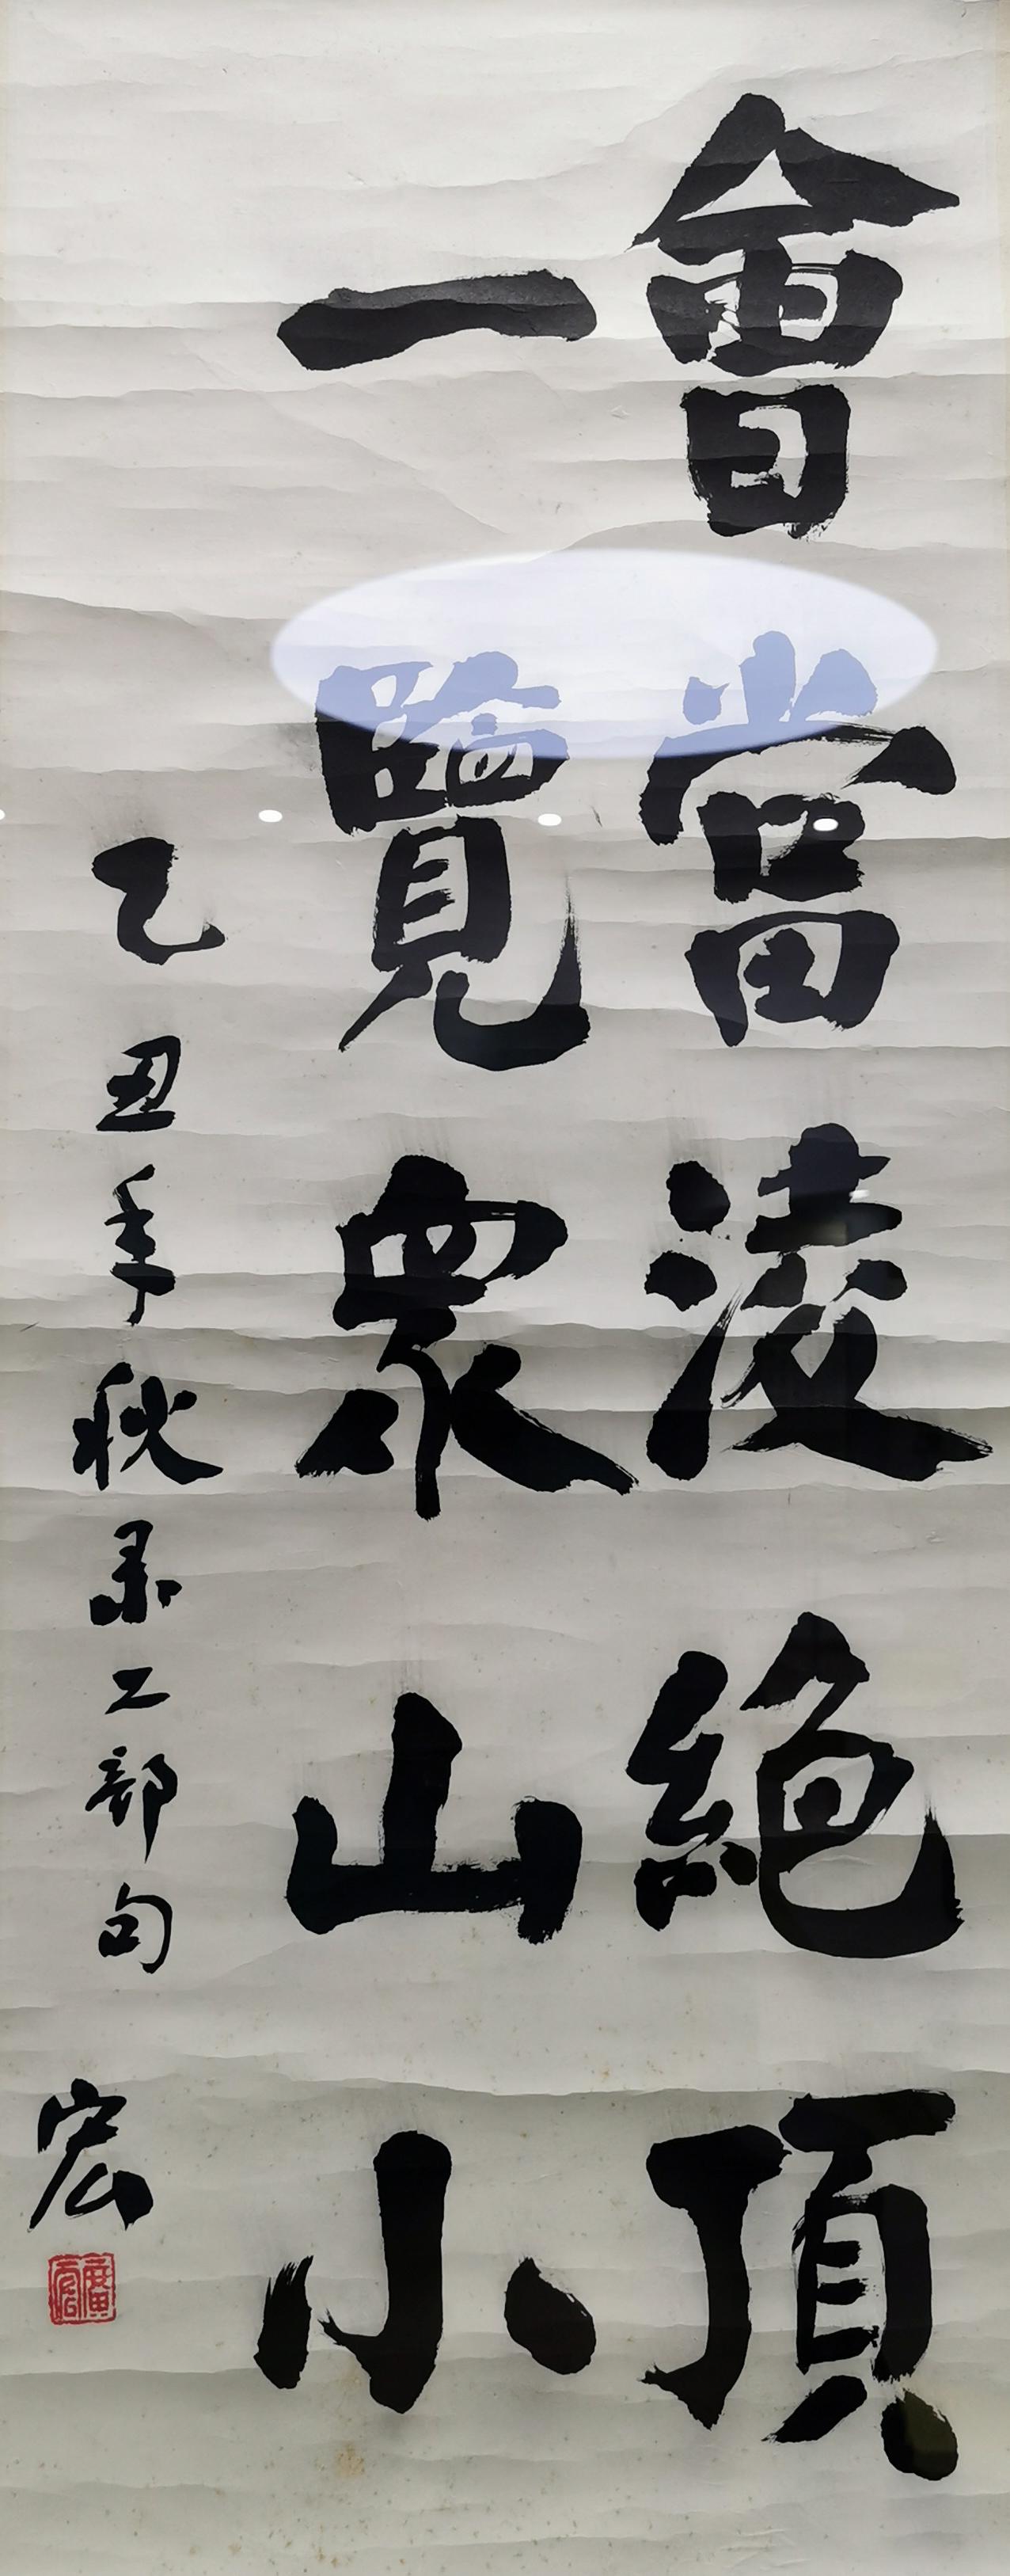 會當淩絕頂
一覽眾山小
乙丑年秋录工部句
宏